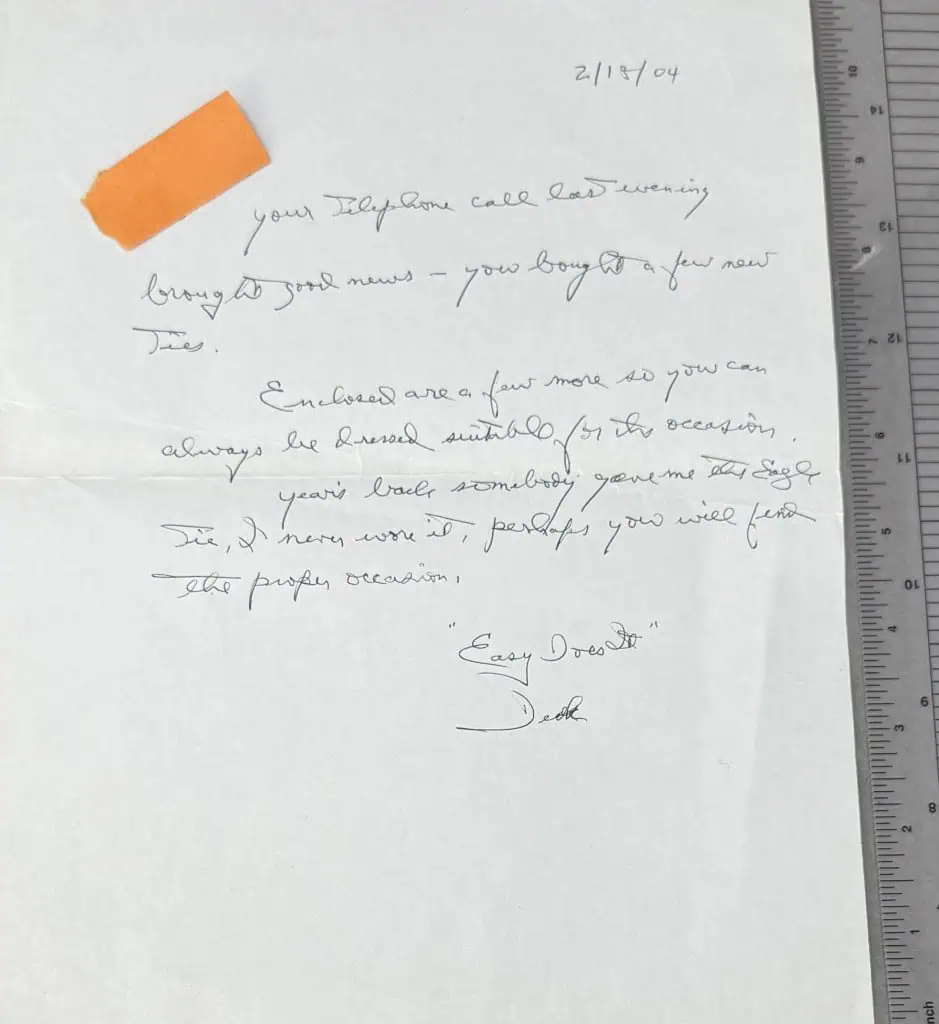 2/18/04
your Telephone call last evening
brought good news – you bought a few new
Ties.
Enclosed are a few more so you can
always be dressed suitable for the occasion.
years back somebody gave me this Eagle
Tie, I never wore it, perhaps you will find
the proper occasion.
"Easy Does It"
10
14
9
13
8
12
7
11
6
10
5
4
6
3
8
2
1
nch